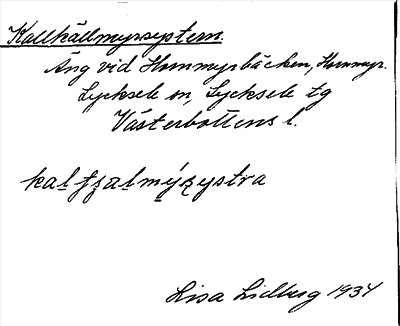 Kallkällmyrsystern.
Äng vid Hornmyrbäcken, Hornmyr.
Lycksele sn, Lycksele tg
Västerbottens l.
kaltʃalmýʀystra
Lisa Lidberg 1934